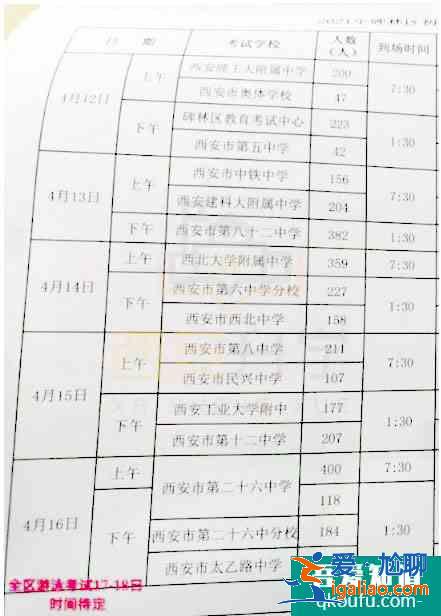 日 期 考试学校 人数(人) 到场时间
4月12日 上午 西安理工大附属中学 200 7:30
西安市奥体学校 47
下午 碑林区教育考试中心 223 1:30
西安市第五中学 42
4月13日 上午 西安市中铁中学 156 7:30
西安建科大附属中学 204
下午 西安市第八十二中学 382 1:30
4月14日 上午 西北大学附属中学 359 7:30
下午 西安市第六中学分校 227 1:30
西安市西北中学 158
4月15日 上午 西安市第八中学 211 7:30
西安市民兴中学 107
下午 西安工业大学附中 177 1:30
西安市第十二中学 207
4月16日 上午 西安市第二十六中学 400 7:30
下午 118 1:30
西安市第二十六中分校 184
西安市太乙路中学
全区游泳考试17-18日
时间待定
爱尬聊